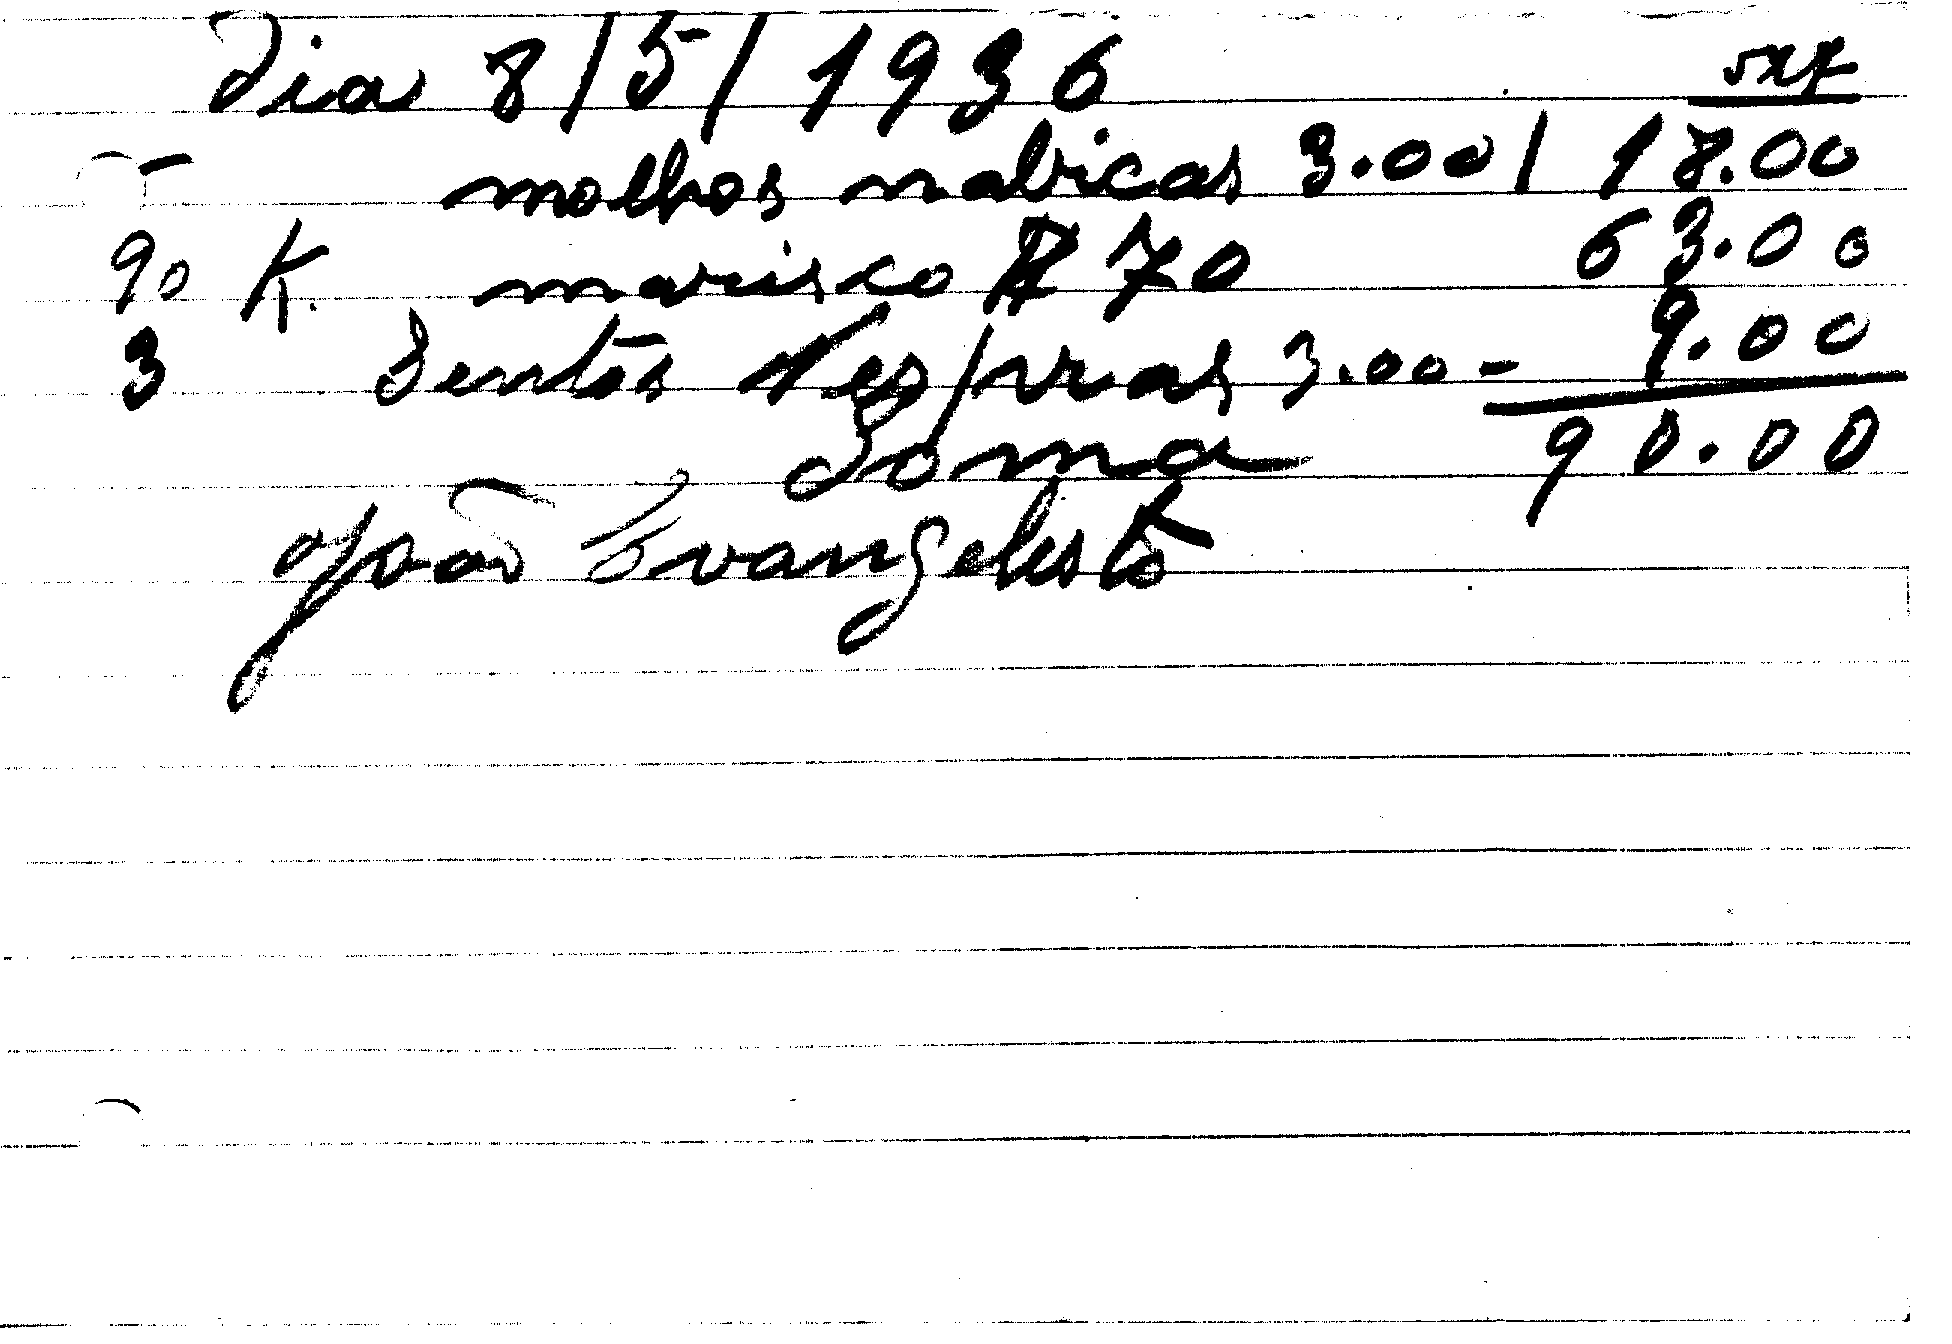 Dia 8/5/1936
molhos nabicas 3.00 | 18.00
90 K. marisco A 70 63.00
3 3.00 - 9.00
Soma 90.00
João Evangelista